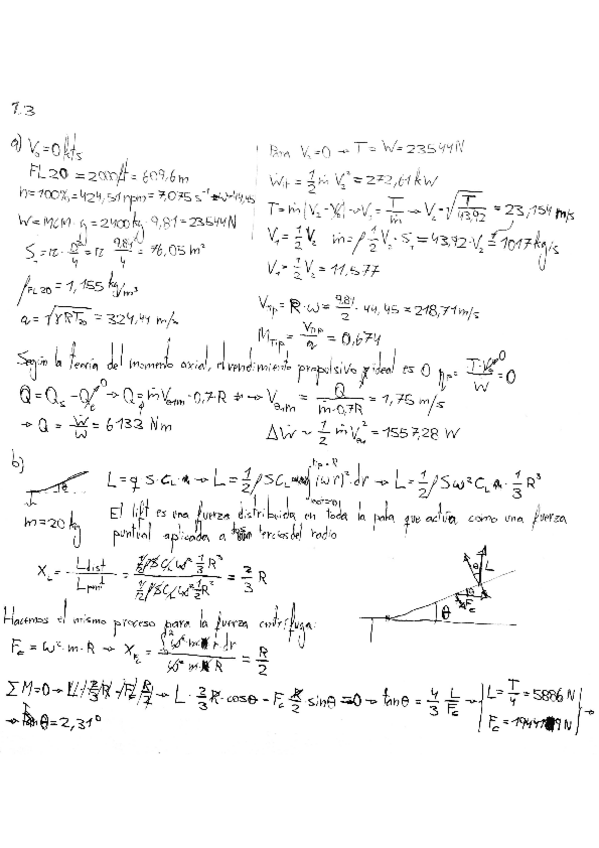 1.3
a) V₀ = 0 kts
FL20 = 2000ft = 609,6m
n = 100% = 424,51 rpm = 7,075 s⁻¹ → ω = 44,45
W = MCM · g = 2400kg · 9,81 = 23544N
S = π · D²/4 = π · 9,81²/4 = 76,05 m²
ρFL20 = 1,155 kg/m³
a = √γRT₂₀ = 324,41 m/s
Para V₀ = 0 → T = W = 23544N
= 1/2 ṁ V₂² = 272,61 kW
T = ṁ(V₂ - V₀) → V₂ = T/ṁ → V₂ = √T/43,92 = 23,154 m/s
V₁ = 1/2 V₂ ṁ = ρ 1/2 V₂ · S₁ = 43,92 · V₂ = 1017 kg/s
V₁ = 1/2 V₂ = 11,577
VTip = R · ω = 9,81/2 · 44,45 = 218,71 m/s
MTip = VTip/a = 0,674
Según la teoría del momento axial, el rendimiento propulsivo ideal es 0 ηp = T · V₀/Ẇ = 0
Q = Qs - Qt → Q = ṁ Vθ1m · 0,7 · R → Vθ1m = Q/ṁ · 0,7R = 1,75 m/s
→ Q = Ẇ/ω = 6133 Nm
ΔẆ ~ 1/2 ṁ Vθ² = 1557,28 W
b)
L = q S · CL → L = 1/2 ρ S CL (ωr)² · dr → L = 1/2 ρ S ω² CL · 1/3 R³
m = 20 kg
El lift es una fuerza distribuida en toda la pala que actúa como una fuerza
puntual aplicada a dos tercios del radio
XL = Ldist/Lpunt = = 2/3 R
θ L Fc
Hacemos el mismo proceso para la fuerza centrífuga:
Fc = ω² · m · R → XFc = = R/2
ΣM = 0 → L · 2/3 R · cosθ - Fc R/2 · sinθ = 0 → tanθ = 4/3 L/Fc → { L = T/4 = 5886 N
Fc = N } →
→ θ = 2,31°